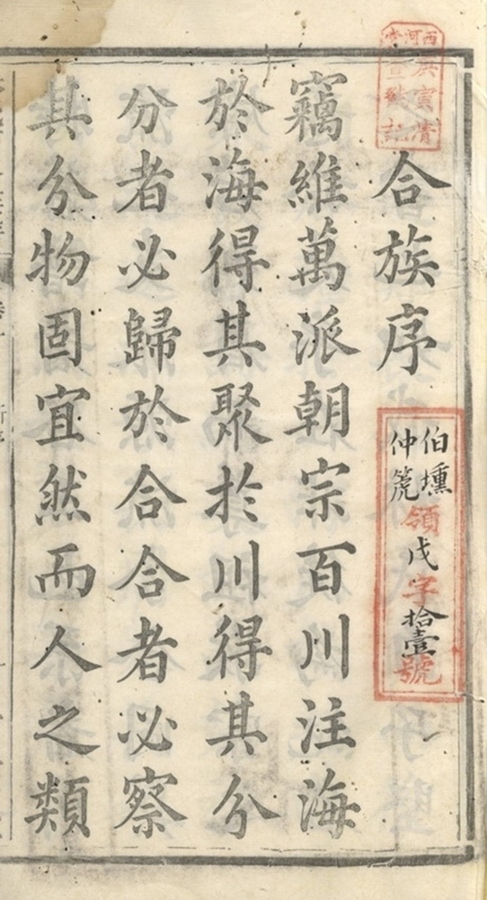 西河堂
合族序
伯壎
仲篪
領戊字拾壹號
竊維萬派朝宗百川注海
於海得其聚於川得其分
分者必歸於合合者必察
其分物固宜然而人之類